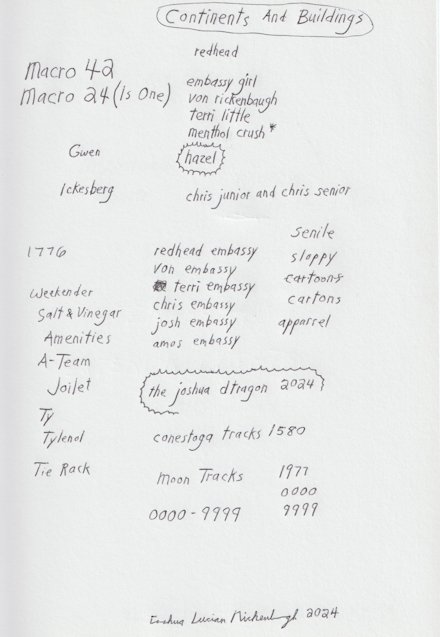 Continents And Buildings
redhead
Macro 42
Macro 24 (Is One)
embassy girl
von rickenbaugh
terri little
menthol crush *
Gwen
hazel
Ickesberg
chris junior and chris senior
senile
1776
redhead embassy
sloppy
von embassy
cartoons
Weekender
terri embassy
cartons
Salt & Vinegar
chris embassy
apparrel
Amenities
josh embassy
A-Team
amos embassy
Joilet
the joshua dtragon 2024
Ty
Tylenol
conestoga tracks 1580
Tie Rack
Moon Tracks
1977
0000
0000 - 9999
9999
Lucian 2024